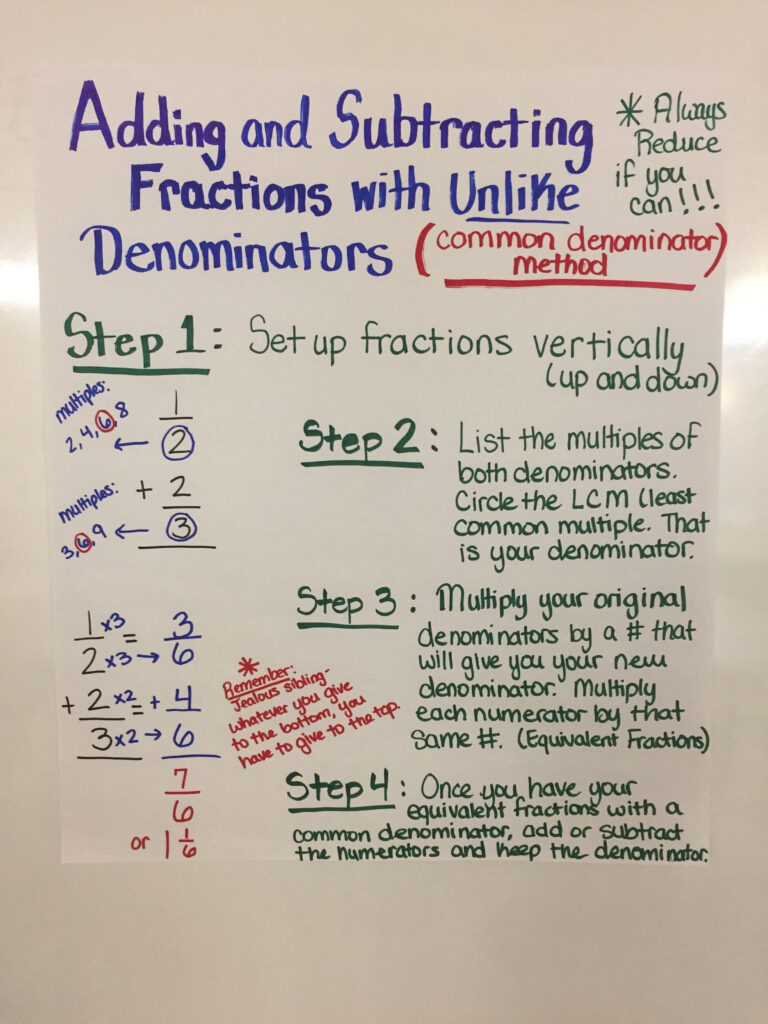 Adding and Subtracting
Fractions with Unlike
Denominators (common denominator
method)
* Always
Reduce
if you
can!!!
Step 1: Set up fractions vertically
(up and down)
multiples:
2, 4, 6, 8 ←
1
2
multiples:
3, 6, 9 ←
+ 2
3
Step 2: List the multiples of
both denominators.
Circle the LCM (least
common multiple. That
is your denominator.
Step 3: Multiply your original
denominators by a # that
will give you your new
denominator. Multiply
each numerator by that
same #. (Equivalent Fractions)
1 x3 = 3
2 x3 → 6
+ 2 x2 = + 4
3 x2 → 6
7
6
or 1 1/6
*
Remember:
Jealous sibling-
whatever you give
to the bottom, you
have to give to the top.
Step 4: Once you have your
equivalent fractions with a
common denominator, add or subtract
the numerators and keep the denominator.